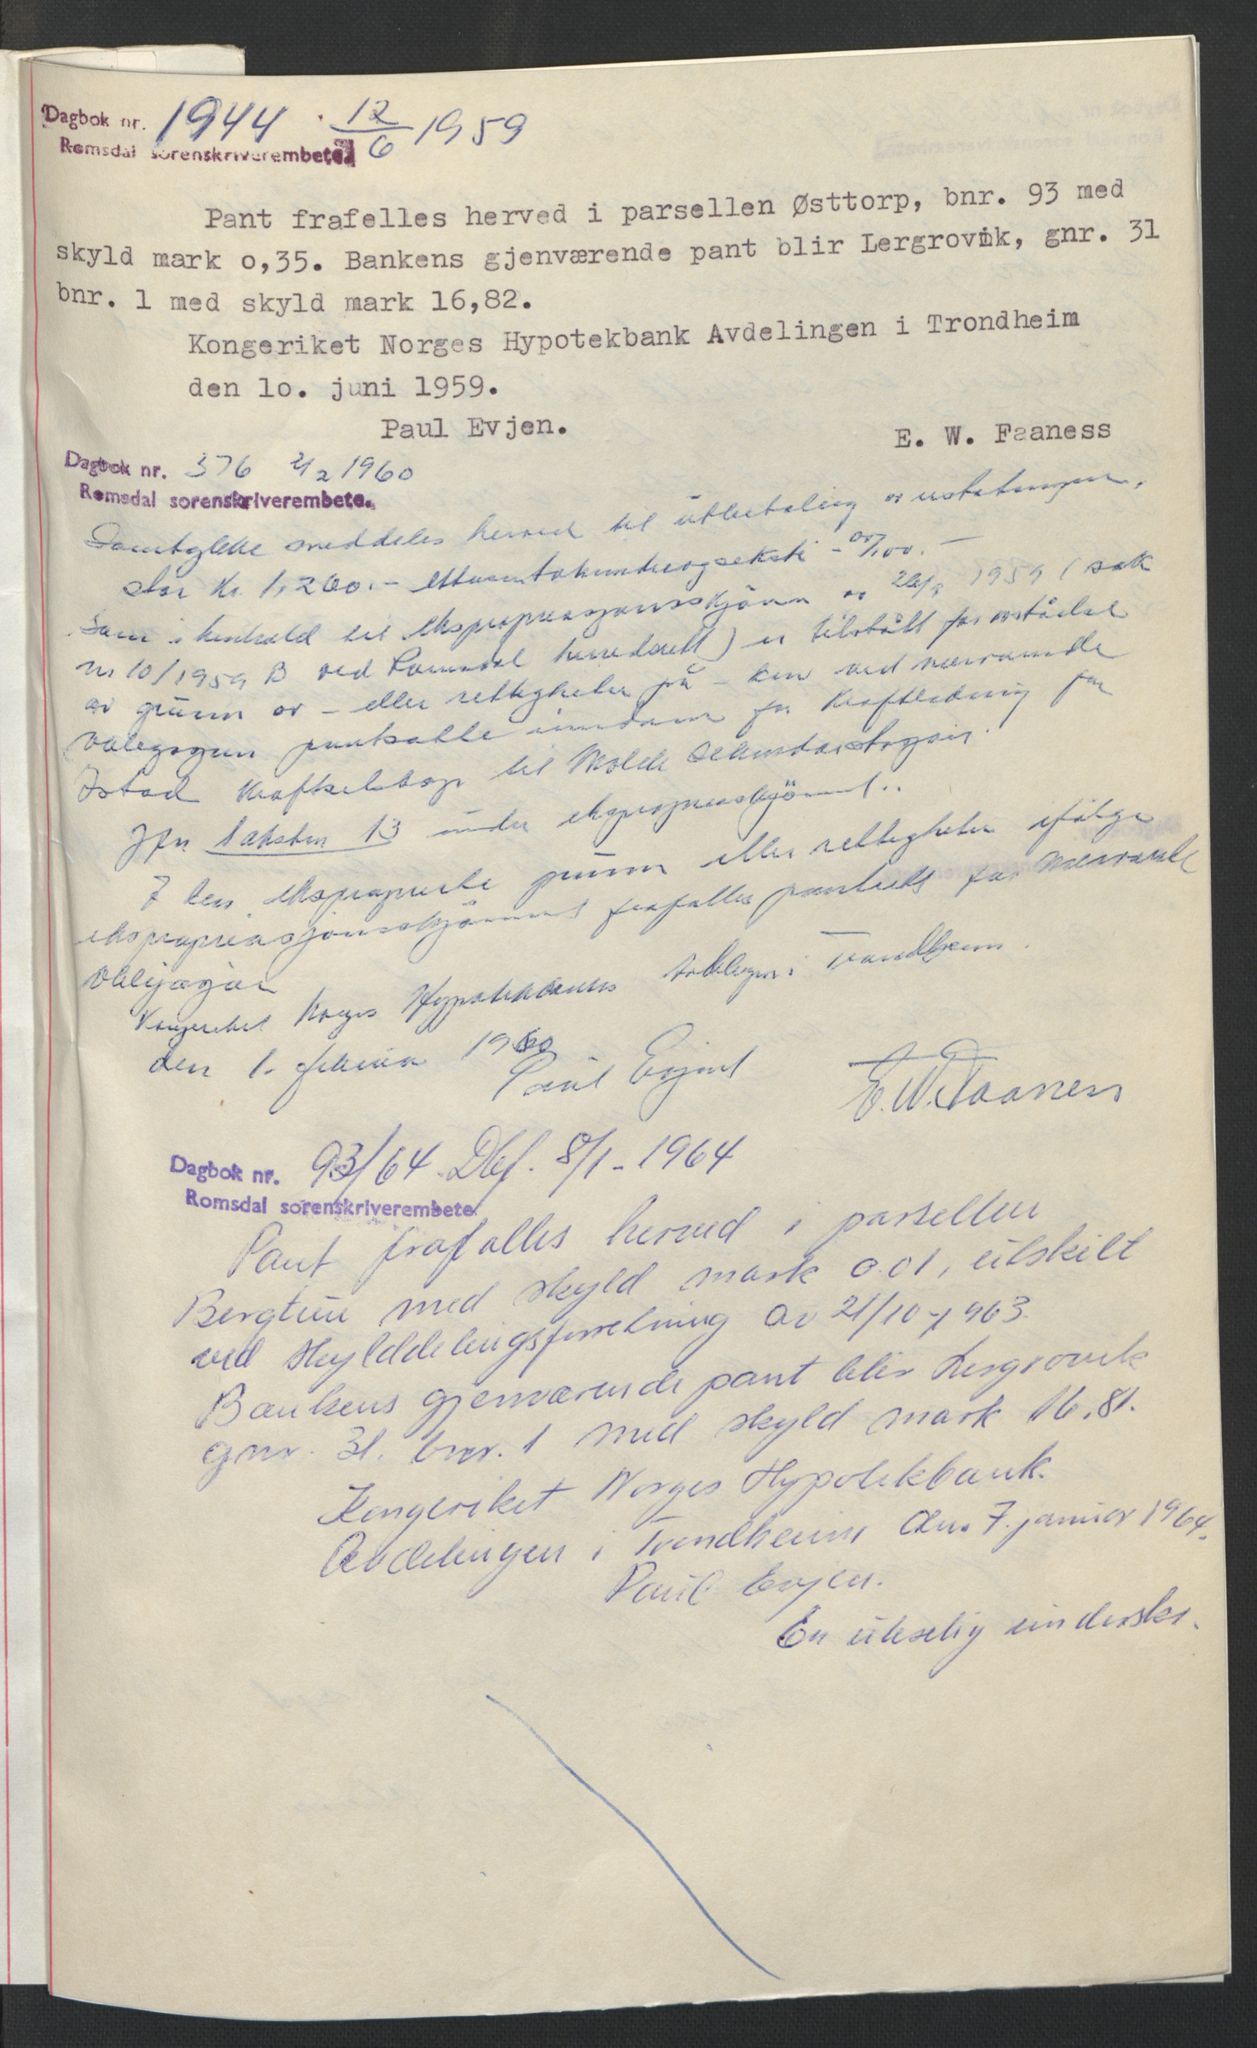 Dagbok nr. 1944 · 12/6 1959
Romsdal sorenskriverembete
Pant frafelles herved i parsellen Østtorp, bnr. 93 med
skyld mark o,35. Bankens gjenværende pant blir Lergrovik, gnr. 31
bnr. 1 med skyld mark 16,82.
Kongeriket Norges Hypotekbank Avdelingen i Trondheim
den 1o. juni 1959.
Paul Evjen.
E. W. Faaness
Dagbok nr. 376 2/2 1960
Romsdal sorenskriverembete.
Samtykke meddeles herved til utbetaling av erstatningen,
stor kr. 1.260.- ettusentohundreogseksti - 00/100. -
som i henhold til ekspropriasjonsskjønn av 1959 (sak
nr 10/1959 B ved Romsdal herredsrett) er tilstått for avståelse
av grunn av - eller rettigheter på - den ved nærværende
obligasjon pantsatte eiendom for kraftledning for
Istad Kraftselskap til Molde Sekundærstasjon.
Jfr. Taksten 13 under ekspropriasjonsskjønnet.
I den eksproprierte grunn eller rettigheter ifølge
ekspropriasjonsskjønnet frafalles panterett for nærværende
obligasjon
Kongeriket Norges Hypotekbank Avdelingen i Trondheim.
den 1. februar 1960
Paul Evjen
E. W. Faaness
Dagbok nr. 93/64 Dbf. 8/1-1964
Romsdal sorenskriverembete
Pant frafalles herved i parsellen
Bergtun med skyld mark 0.01, utskilt
ved skylddelingsforretning av 21/10-1963.
Bankens gjenværende pant blir Lergrovik
gnr. 31. bnr. 1 med skyld mark 16,81.
Kongeriket Norges Hypotekbank.
Avdelingen i Trondheim den 7. januar 1964.
Paul Evjen.
En uleselig underskr.